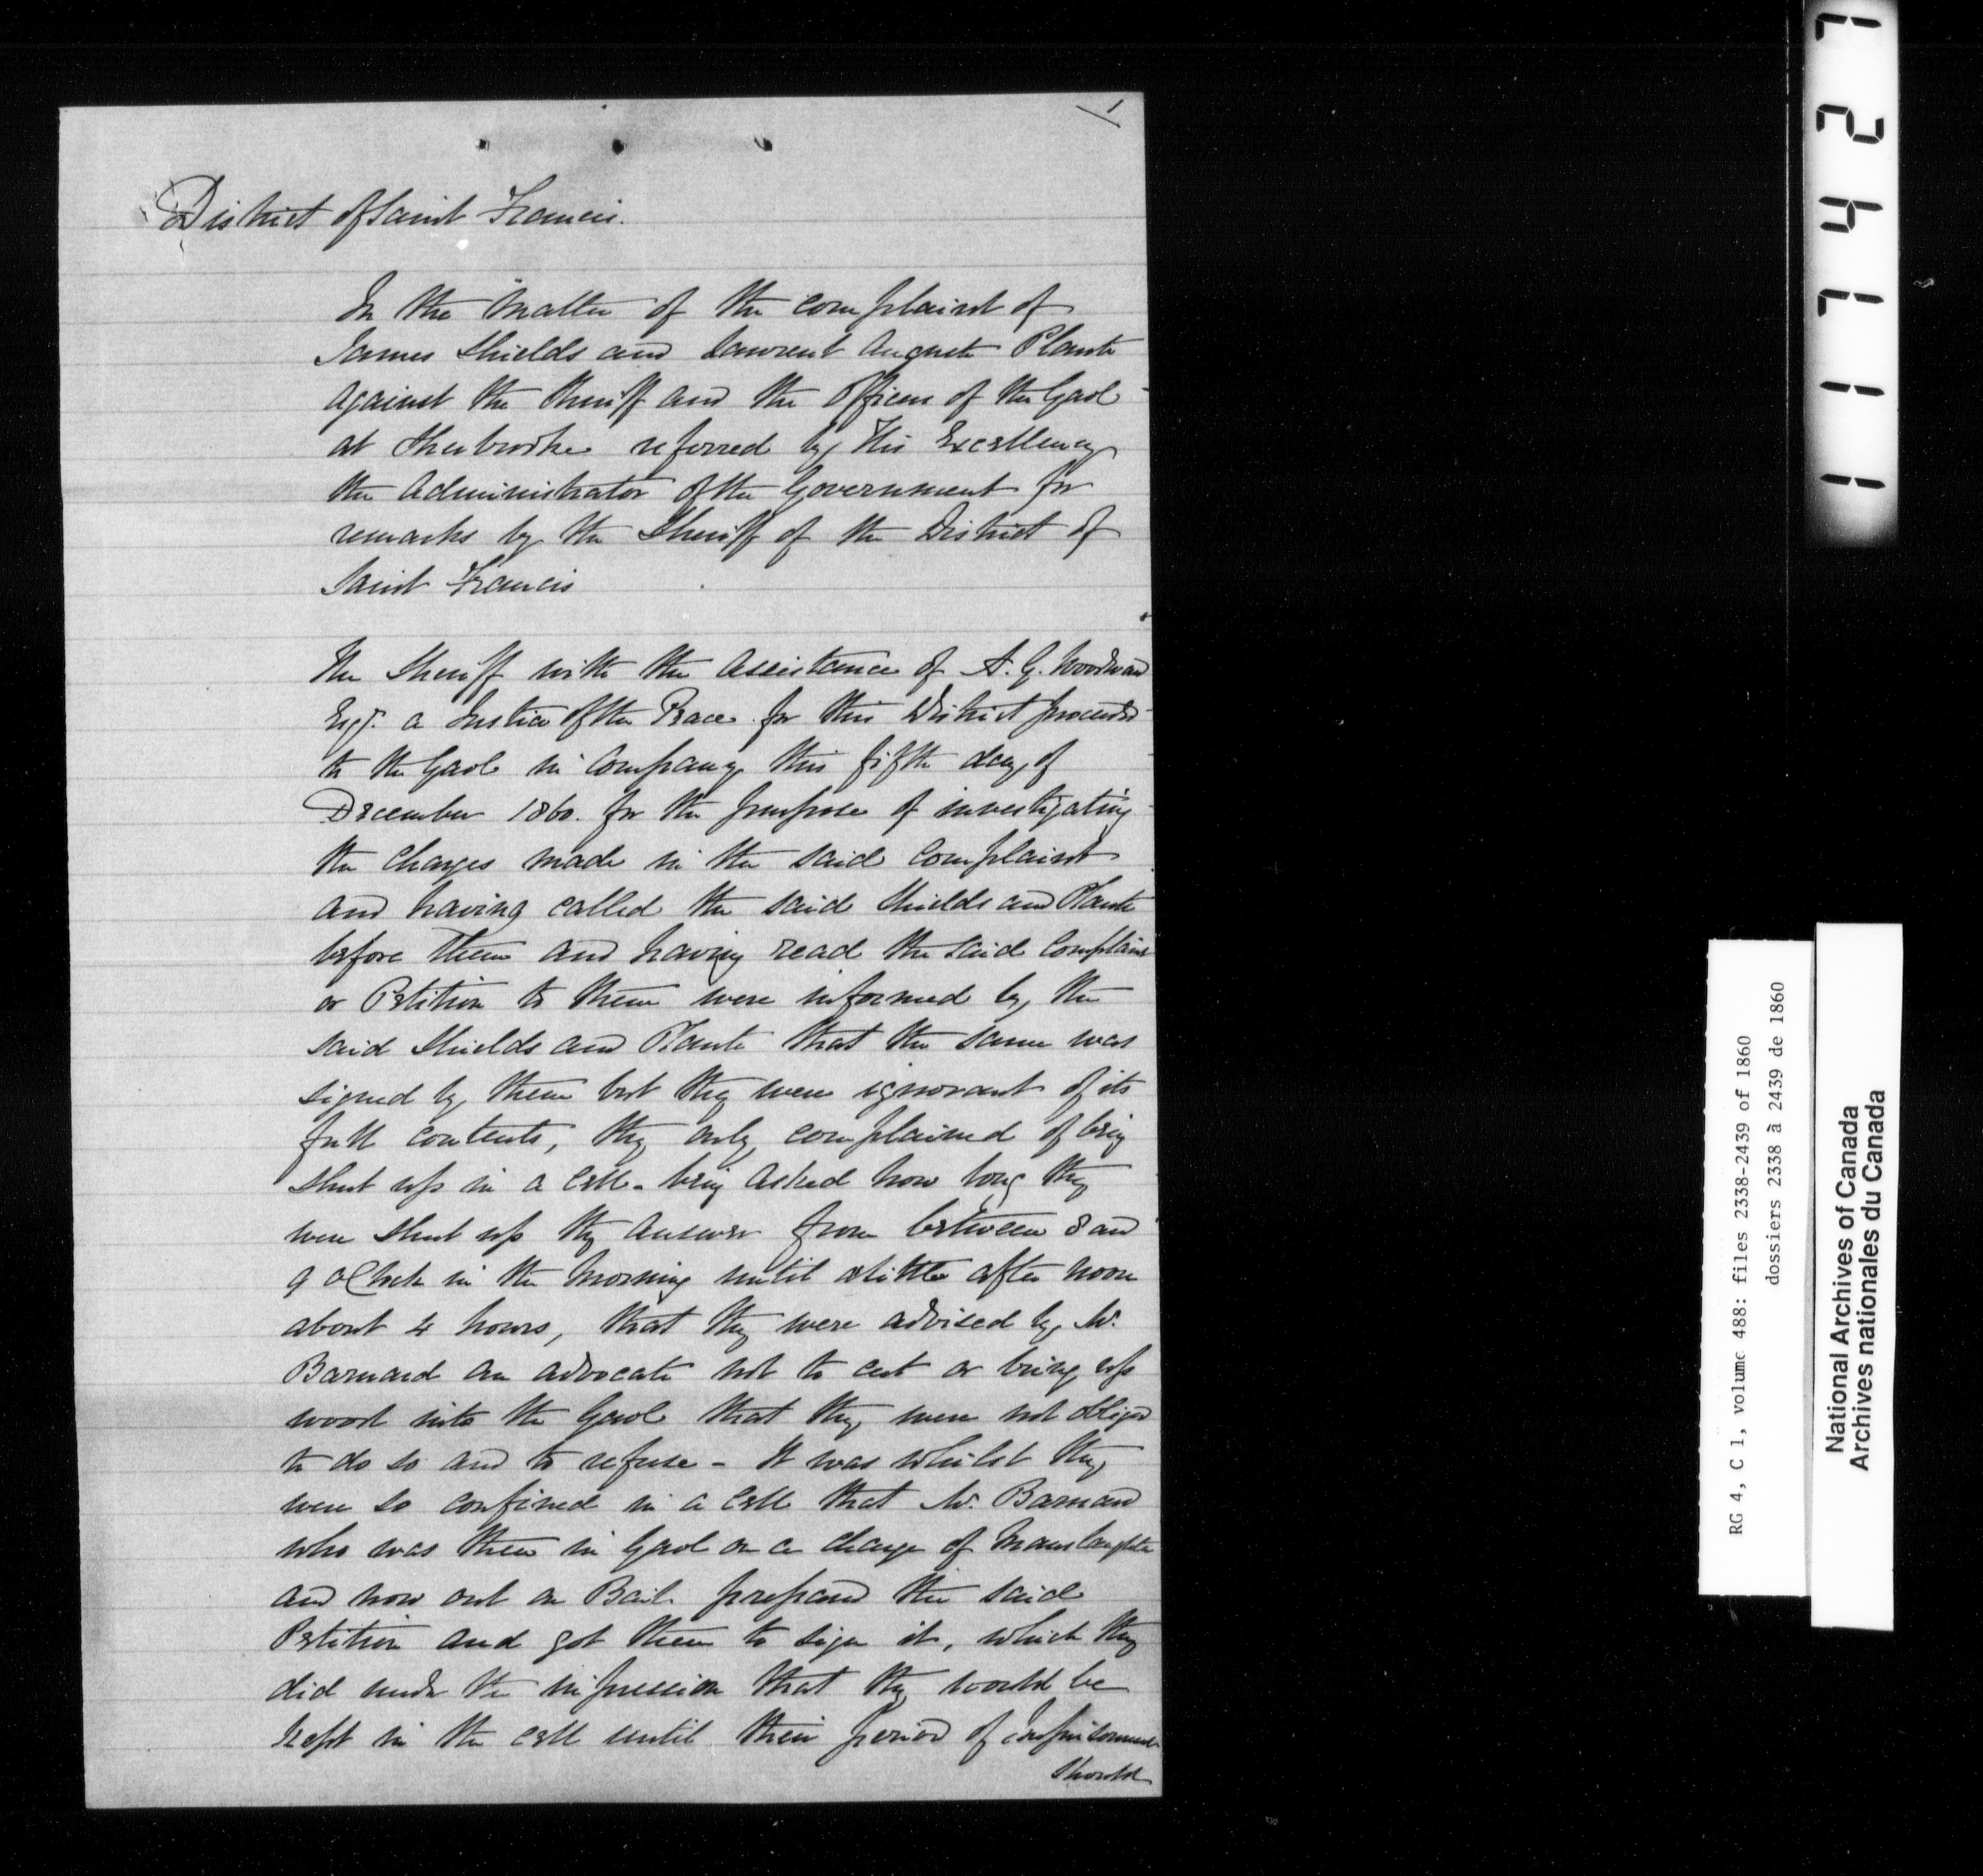 1
District of Saint Francis.
In the Matter of the complaint of
James Shields and Laurent Auguste Plante
against the Sheriff and the Officers of the Gaol
at Sherbrooke referred by His Excellency
the Administrator of the Government for
remarks by the Sheriff of the District of
Saint Francis
The Sheriff with the assistance of A. G. Woodward
Esqr. a Justice of the Peace for this District proceeded
to the Gaol in company this fifth day of
December 1860. for the purpose of investigating
the charges made in the said complaint
and having called the said Shields and Plante
before them and having read the said Complaint
or Petition to them were informed by the
said Shields and Plante that the same was
signed by them but they were ignorant of its
full contents, they only complained of being
shut up in a cell - being asked how long they
were shut up they answer from between 8 and
9 oClock in the morning until a little after noon
about 4 hours, that they were advised by Mr.
Barnard an advocate not to cut or bring up
wood into the Gaol that they were not obliged
to do so and to refuse - It was whilst they
were so confined in a cell that Mr. Barnard
who was then in Gaol on a charge of Manslaughter
and now out on Bail prepared the said
Petition and got them to sign it, which they
did under the impression that they would be
kept in the cell until their period of imprisonment
should
1 1 7 4 2 7
RG 4, C 1, volume 488: files 2338-2439 of 1860
dossiers 2338 à 2439 de 1860
National Archives of Canada
Archives nationales du Canada